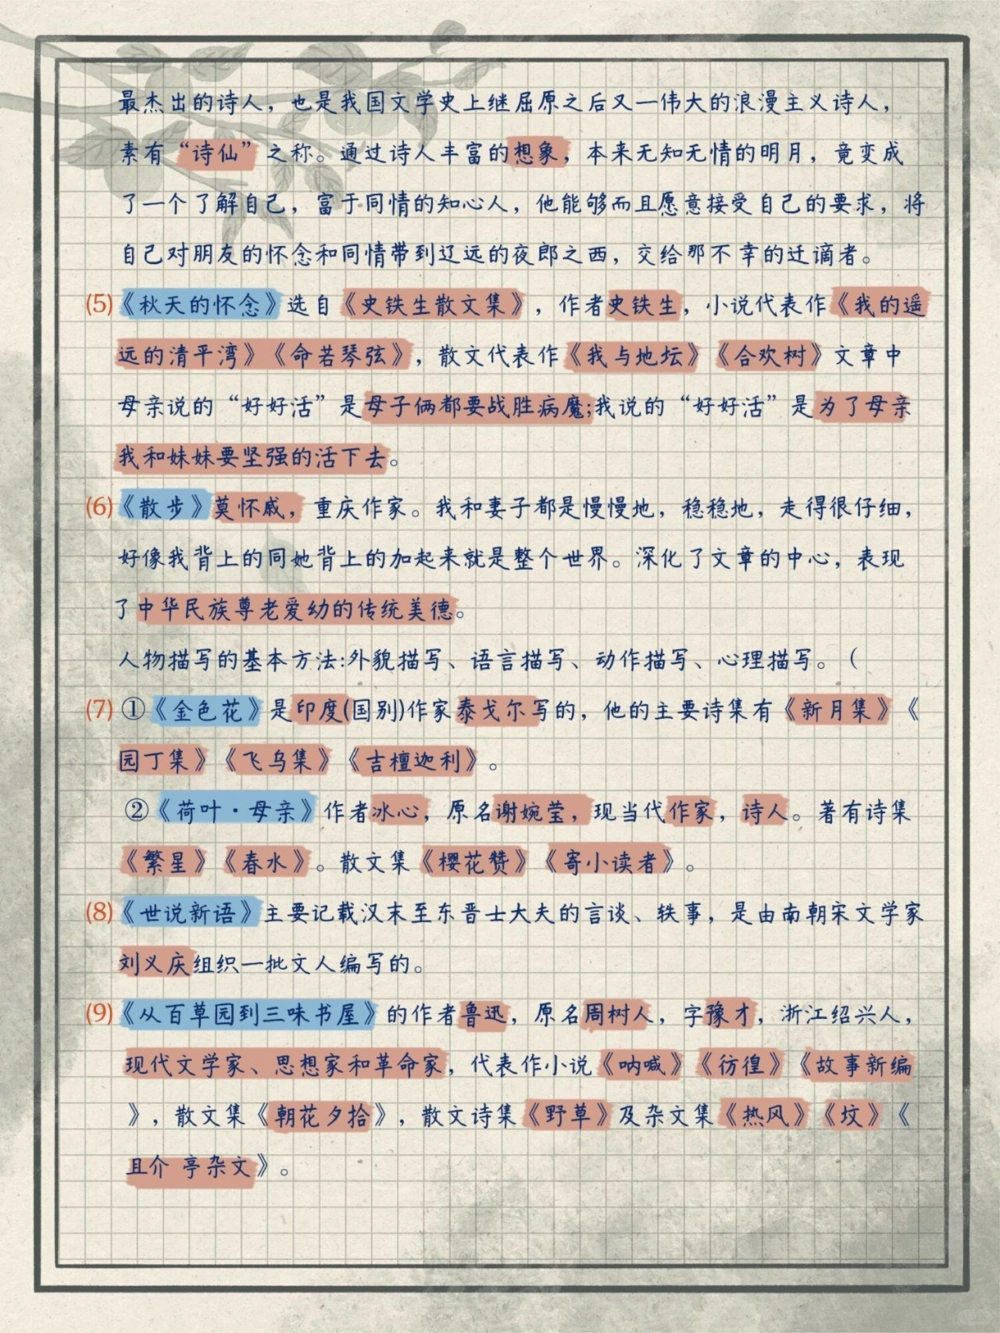 最杰出的诗人，也是我国文学史上继屈原之后又一伟大的浪漫主义诗人，
素有“诗仙”之称。通过诗人丰富的想象，本来无知无情的明月，竟变成
了一个了解自己，富于同情的知心人，他能够而且愿意接受自己的要求，将
自己对朋友的怀念和同情带到辽远的夜郎之西，交给那不幸的迁谪者。
(5)《秋天的怀念》选自《史铁生散文集》，作者史铁生，小说代表作《我的遥
远的清平湾》《命若琴弦》，散文代表作《我与地坛》《合欢树》文章中
母亲说的“好好活”是母子俩都要战胜病魔;我说的“好好活”是为了母亲
我和妹妹要坚强的活下去。
(6)《散步》莫怀戚，重庆作家。我和妻子都是慢慢地，稳稳地，走得很仔细，
好像我背上的同她背上的加起来就是整个世界。深化了文章的中心，表现
了中华民族尊老爱幼的传统美德。
人物描写的基本方法:外貌描写、语言描写、动作描写、心理描写。（
(7)①《金色花》是印度(国别)作家泰戈尔写的，他的主要诗集有《新月集》《
园丁集》《飞鸟集》《吉檀迦利》。
②《荷叶·母亲》作者冰心，原名谢婉莹，现当代作家，诗人。著有诗集
《繁星》《春水》。散文集《樱花赞》《寄小读者》。
(8)《世说新语》主要记载汉末至东晋士大夫的言谈、轶事，是由南朝宋文学家
刘义庆组织一批文人编写的。
(9)《从百草园到三味书屋》的作者鲁迅，原名周树人，字豫才，浙江绍兴人，
现代文学家、思想家和革命家，代表作小说《呐喊》《彷徨》《故事新编
》，散文集《朝花夕拾》，散文诗集《野草》及杂文集《热风》《坟》《
且介 亭杂文》。